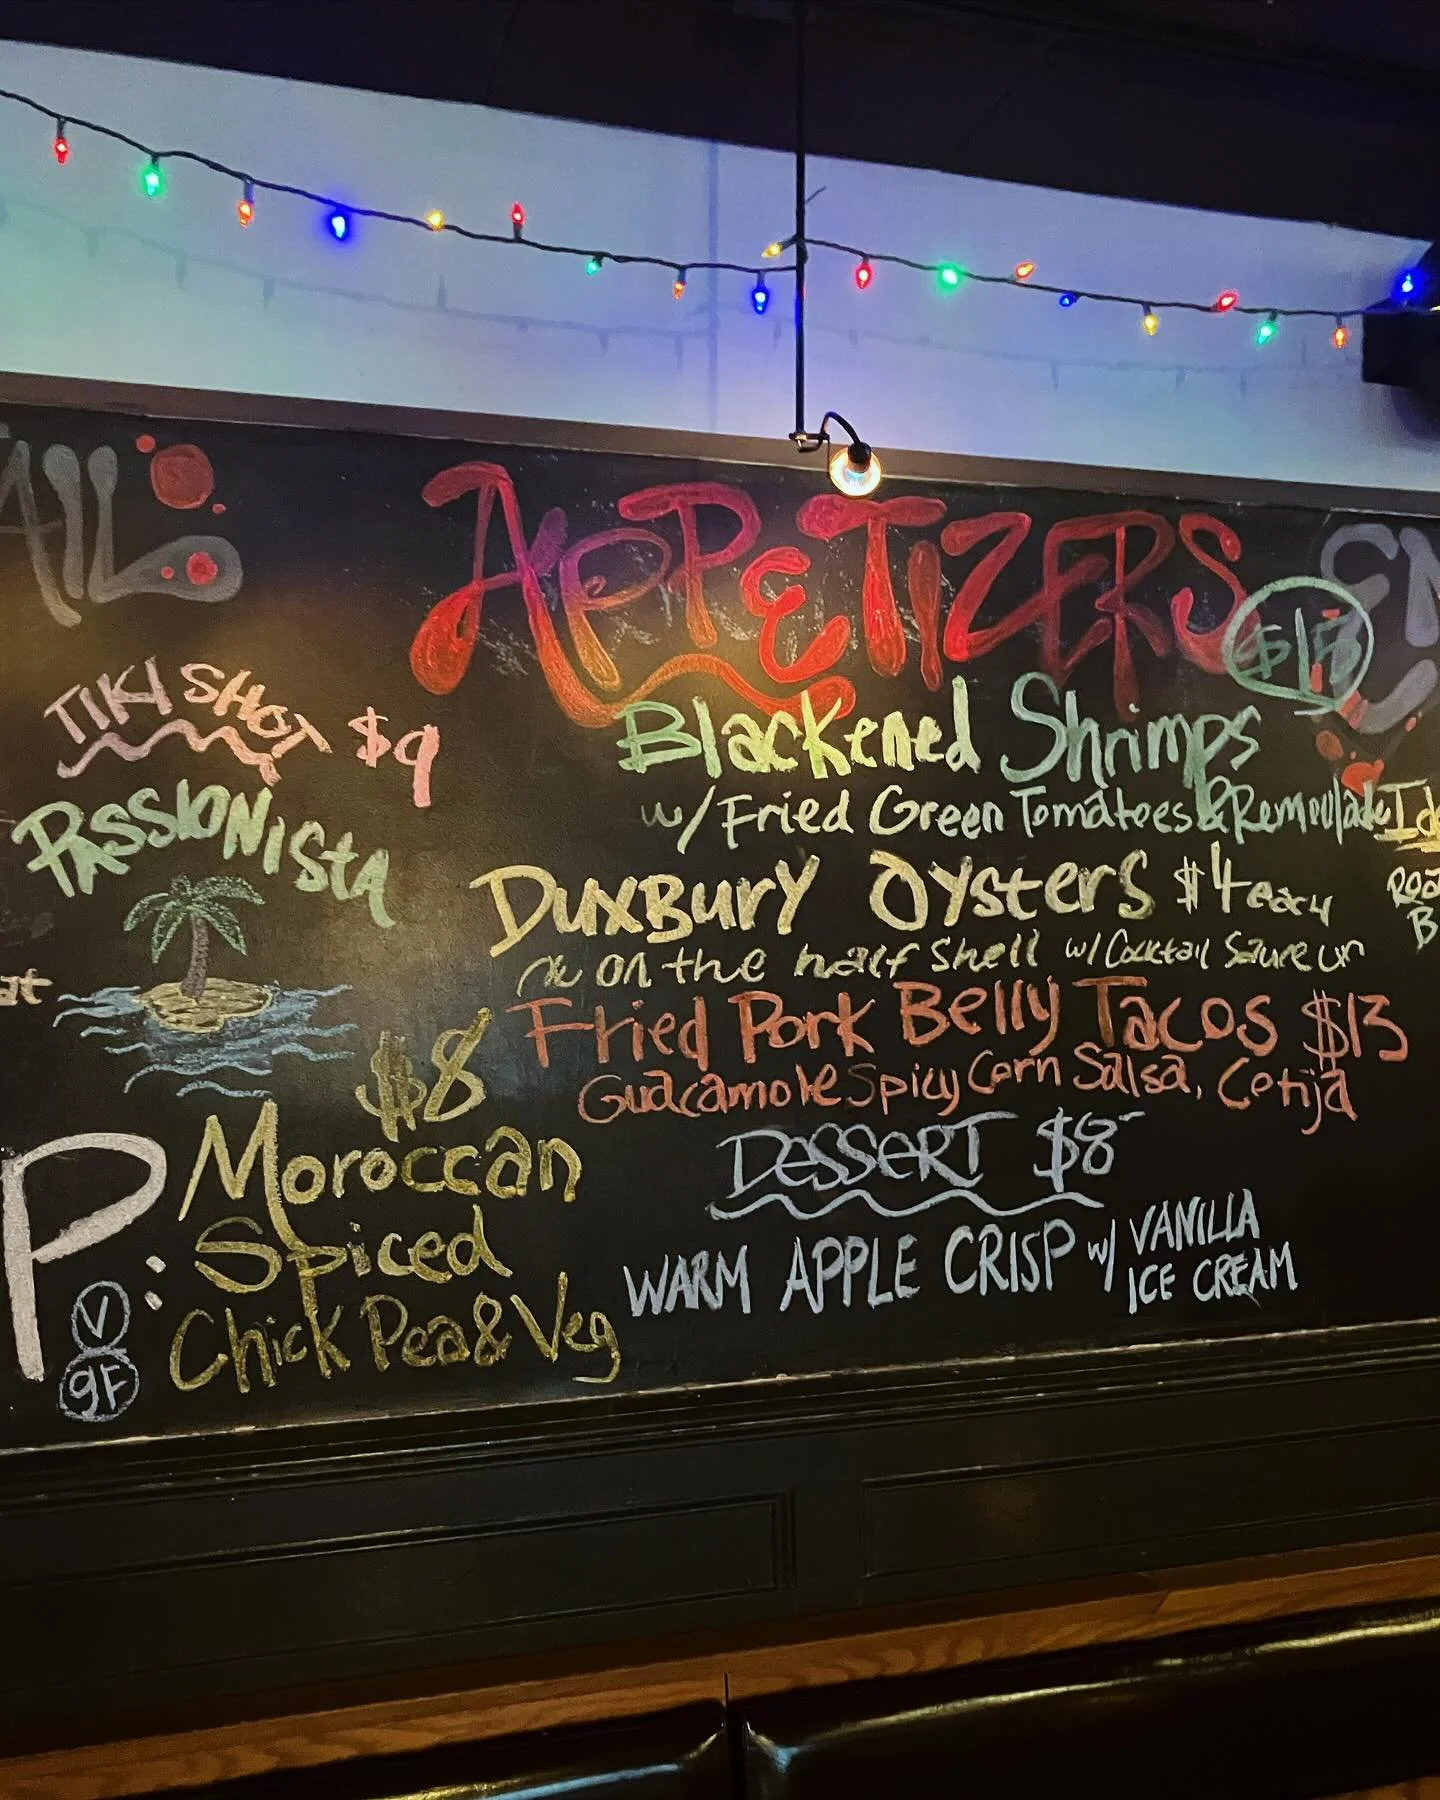 AIL
TIKI SHOT $9
PASSIONISta
at
$8
P:
V
gF
Moroccan
Spiced
Chick Pea & Veg
APPETIZERS
Blackened Shrimps
w/ Fried Green Tomatoes & Remoulade
DuxBury Oysters $4 each
on the half Shell w/ Cocktail
Fried Pork Belly Tacos $13
Guacamole Spicy Corn Salsa, Cotija
DESSERT $8
WARM APPLE CRISP w/ VANILLA
ICE CREAM
EN